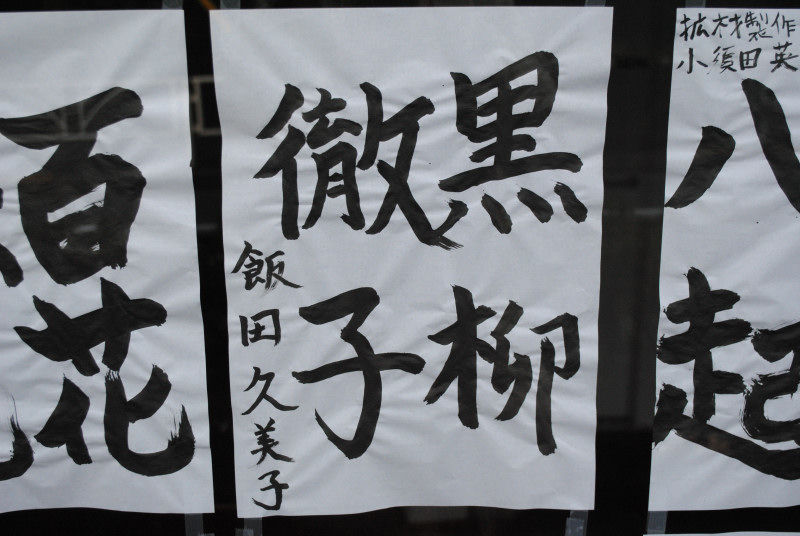 拡材製作
小須田英
八
起
黒柳
徹子
飯田久美子
百花